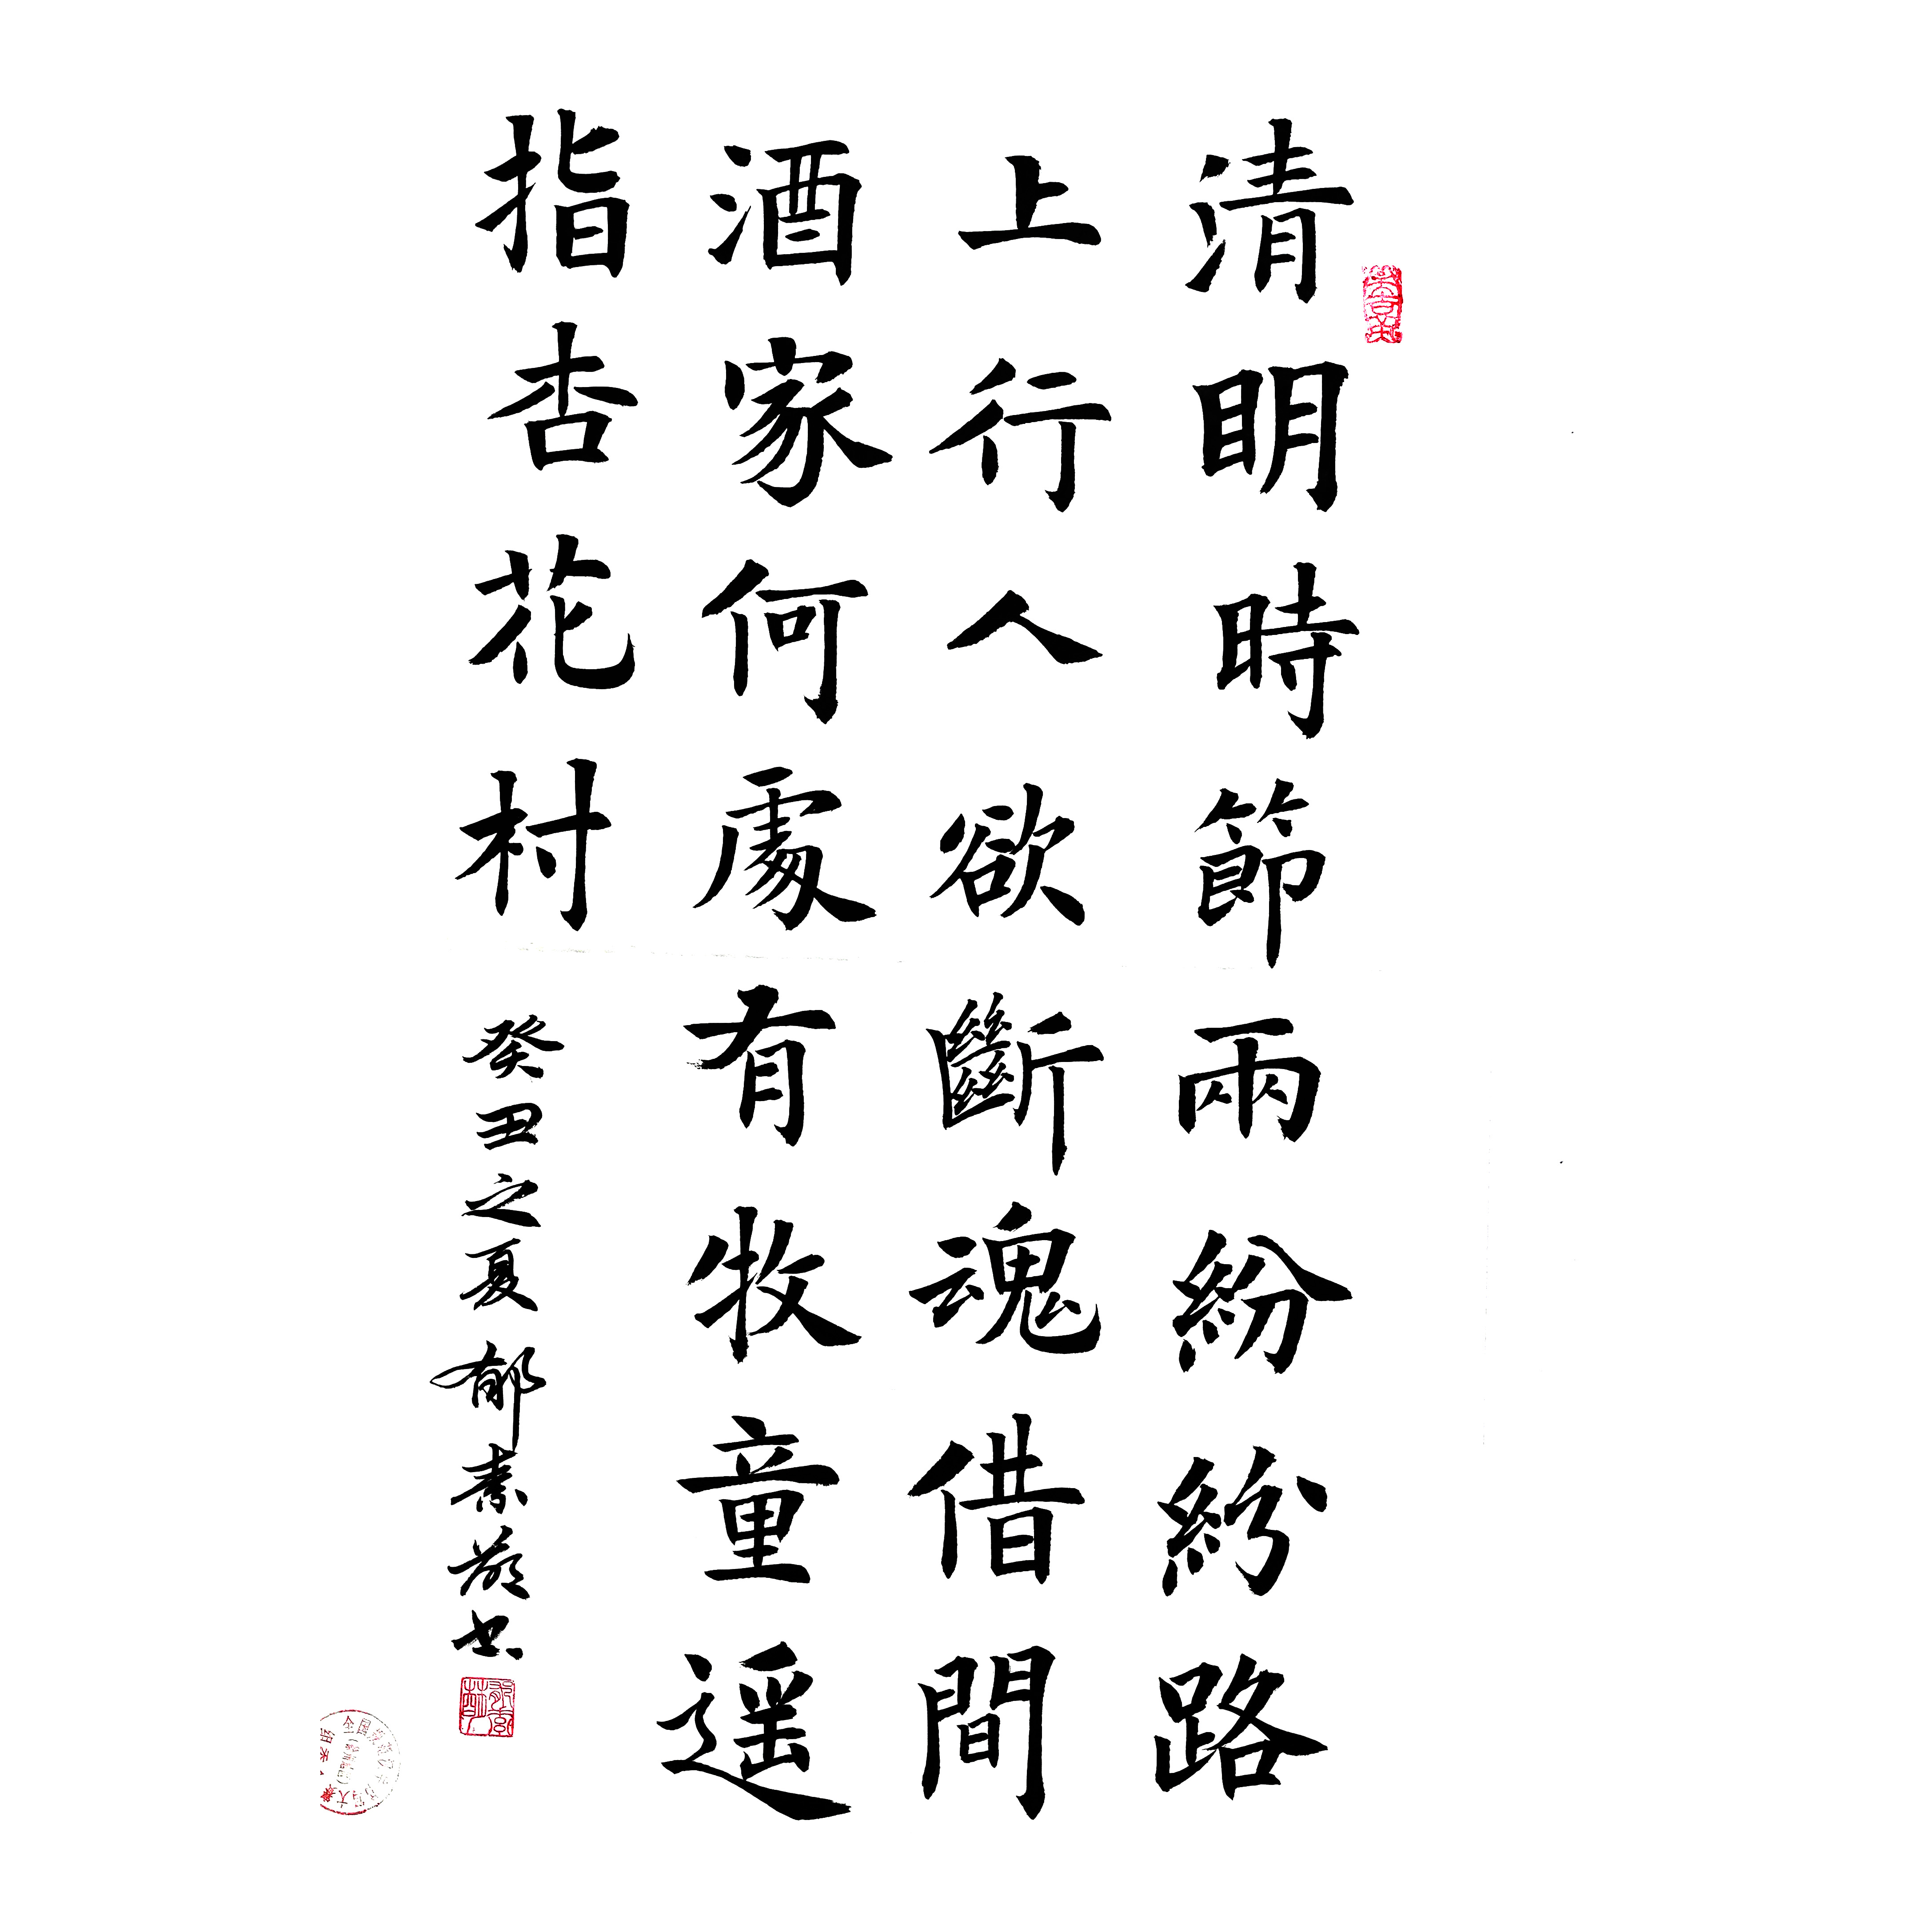 清明時節雨紛紛路
上行人欲斷魂借間
酒家何處有牧童遥
指杏花村
癸丑之夏郁
書